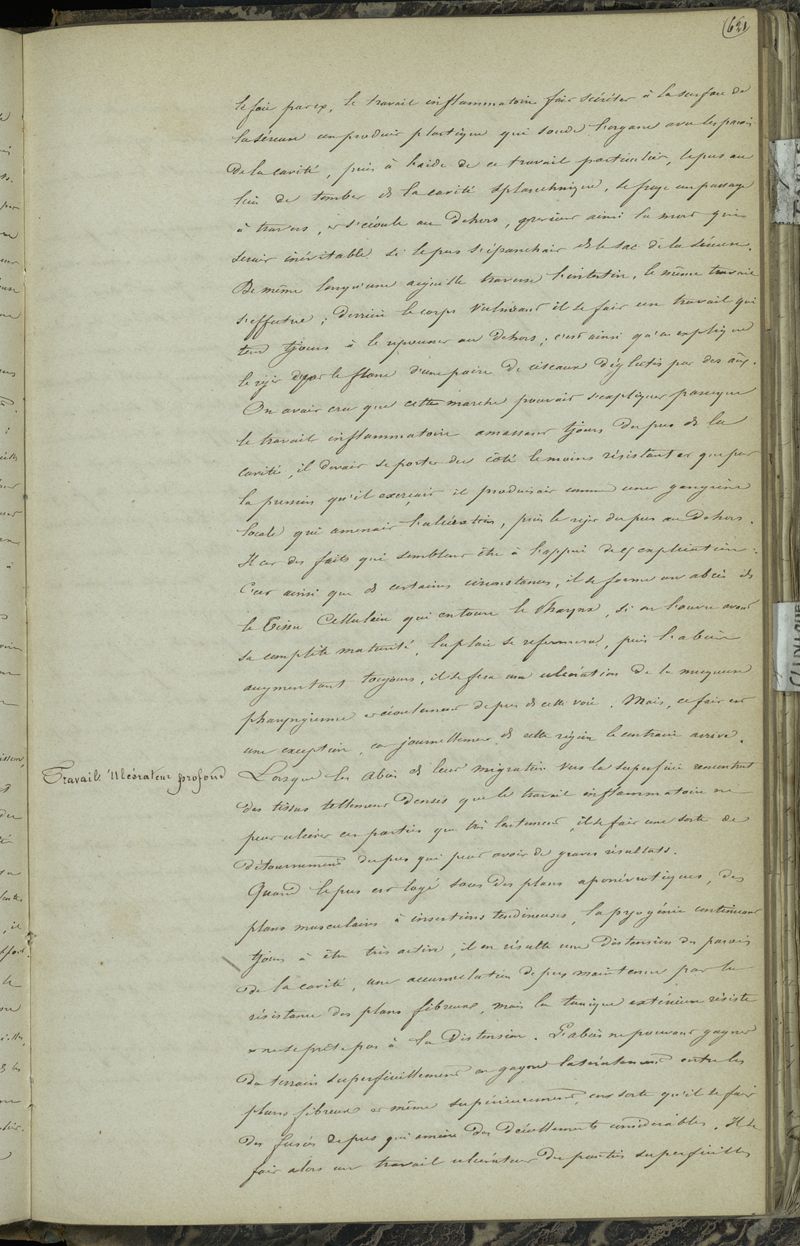 621
le foie par ex, le travail inflammatoire fait sécréter à la surface de
la séreuse un produit plastique qui soude l'organe avec les parois
de la cavité, puis à l'aide de ce travail particulier, le pus au
lieu de tomber ds la cavité splanchnique, se fraye un passage
à travers, et s'écoule au dehors, ainsi la mort qui
serait inévitable si le pus s'épanchait ds le sac de la séreuse.
De même lorsqu'une aiguille traverse l'intestin, le même travail
s'effectue ; derrière le corps vulnérant il se fait un travail qui
tend tjours à le repousser au dehors ; c'est ainsi qu'on explique
le rejet par le flanc d'une paire de ciseaux déglutis par des
On avait cru que cette marche pouvait s'expliquer parceque
le travail inflammatoire amassant tjours du pus ds la
cavité, il devait se porter du côté le moins résistant et que par
la pression qu'il exerçait il produisait comme une gangrène
locale qui amenait l'ulcération, puis le rejet du pus au dehors.
Il est des faits qui semblent être à l'appui de explication :
C'est ainsi que ds certaines circonstances, il se forme un abcès ds
le tissu cellulaire qui entoure le Pharynx, si on l'ouvre avant
sa complète maturité, la plaie se refermera, puis l'abcès
augmentant toujours, il se fera une ulcération de la muqueuse
pharyngienne et écoulement de pus ds cette voie. Mais, ce fait est
une exception, car journellement ds cette région le contraire arrive.
Travail ulcérateur profond
Lorsque les abcès ds leur migration vers la superficie rencontrent
des tissus tellement denses que le travail inflammatoire ne
peut ulcérer ces parties que très lentement, il se fait une sorte de
détournement du pus qui peut avoir de graves résultats.
Quand le pus est logé sous des plans aponévrotiques, des
plans musculaires à insertions tendineuses, la pyogénie continuant
tjours à être très active, il en résulte une distension des parois
de la cavité, une accumulation de pus maintenue par la
résistance des plans fibreux, mais la tunique extérieure résiste
et ne se prête pas à la distension. L'abcès ne pouvant gagner
du terrain superficiellement en gagne latéralement entre les
plans fibreux et même supérieurement, en sorte qu'il se fait
des fusées de pus qui amène des décollements considérables. Il se
fait alors un travail ulcérateur des parties superficielles